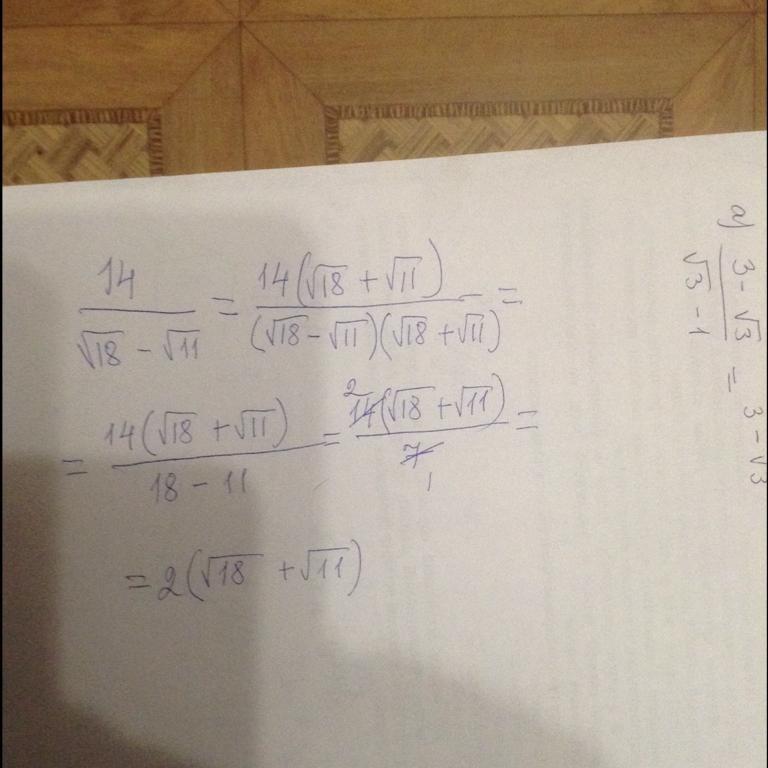 14/(√18 - √11) = 14(√18 + √11)/((√18 - √11)(√18 + √11)) =
= 14(√18 + √11)/(18 - 11) = 14(√18 + √11)/7 =
2 1
= 2(√18 + √11)
а) (3 - √3)/(√3 - 1) = 3 - √3